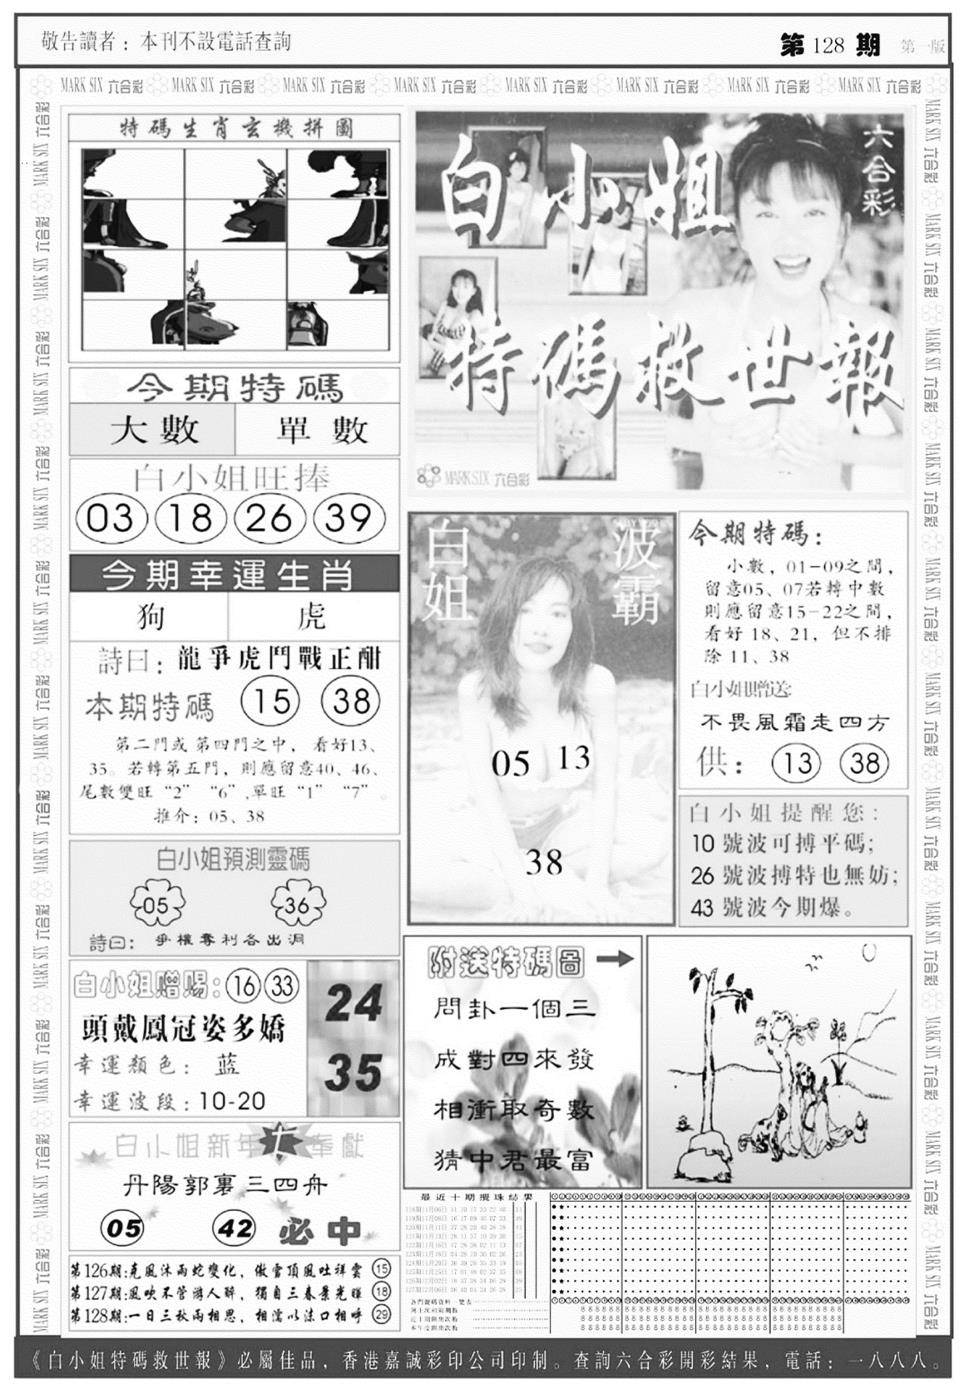 敬告讀者：本刊不設電話查詢
第 128 期 第一版
MARK SIX 六合彩 MARK SIX 六合彩 MARK SIX 六合彩 MARK SIX 六合彩 MARK SIX 六合彩 MARK SIX 六合彩 MARK SIX 六合彩 MARK SIX 六合彩
特碼生肖玄機拼圖
今期特碼
大數 單數
白小姐旺捧
03 18 26 39
今期幸運生肖
狗 虎
詩曰：龍爭虎鬥戰正酣
本期特碼 15 38
第二門或第四門之中，看好13、
35。若轉第五門，則應留意40、46、
尾數雙旺“2”“6”,單旺“1”“7”。
推介：05、38
白小姐預測靈碼
05 36
詩曰：爭權奪利各出洞
白小姐赠赐：16 33
頭戴鳳冠姿多嬌
幸運顏色：蓝
幸運波段：10-20
24
35
白小姐新年大奉獻
丹陽郭裏三四舟
05 42 必中
第126期:克風沐雨蛇變化，傲雪頂風吐祥雲 15
第127期:風吹不管游人醉，獨自三春景光輝 18
第128期:一日三秋兩相思，相濡以沫口相呼 29
白小姐
六合彩
特碼救世報
MARK SIX 六合彩
白姐
波霸
05 13
38
今期特碼：
小數，01-09之間，
留意05、07若轉中數
則應留意15-22之間，
看好18、21，但不排
除11、38
白小姐赠送:
不畏風霜走四方
供：13 38
白小姐提醒您：
10 號波可搏平碼；
26 號波搏特也無妨；
43 號波今期爆。
附送特碼圖
問卦一個三
成對四來發
相衝取奇數
猜中君最富
最近十期攪珠結果
《白小姐特碼救世報》必屬佳品，香港嘉誠彩印公司印制。查詢六合彩開彩結果，電話：一八八八。